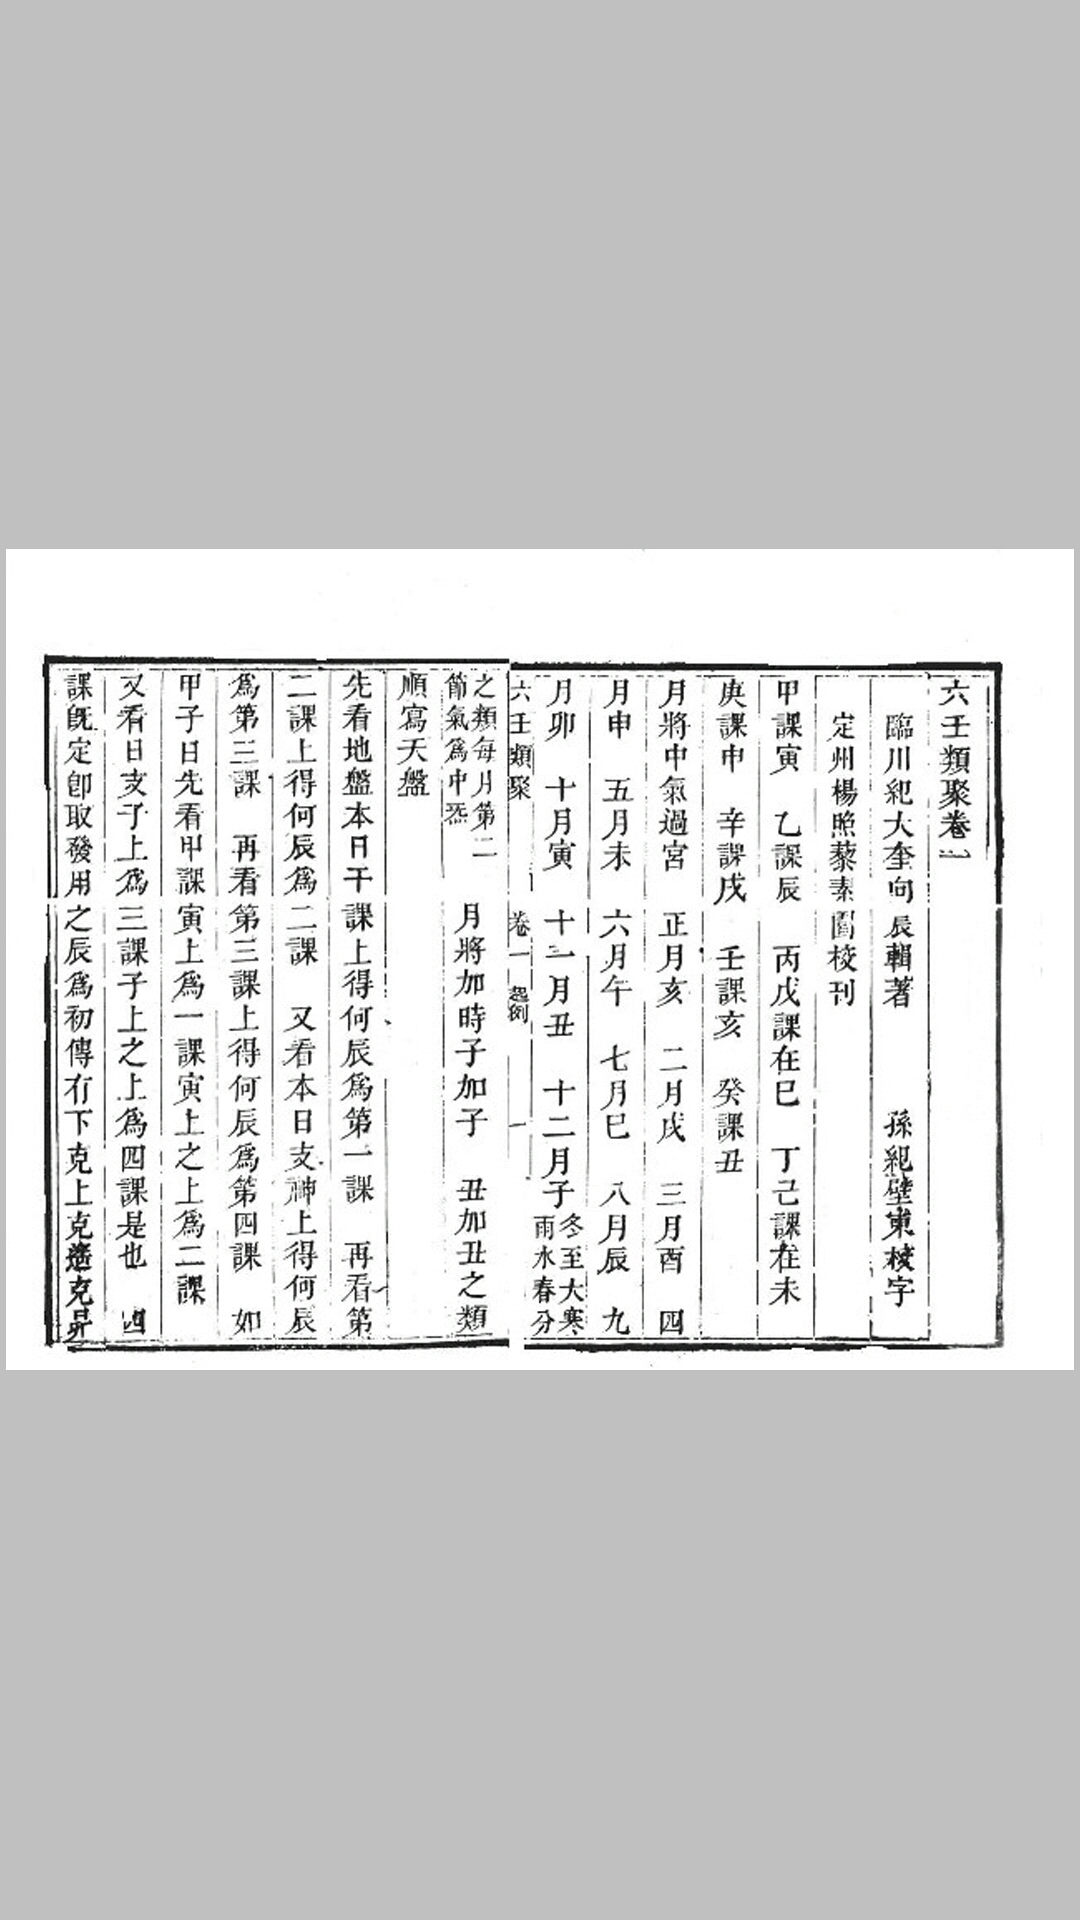 六壬類聚卷一
臨川紀大奎向辰輯著 孫紀壁東校字
定州楊照藜素園校刊
甲課寅 乙課辰 丙戊課在巳 丁己課在未
庚課申 辛課戌 壬課亥 癸課丑
月將中氣過宮 正月亥 二月戌 三月酉 四
月申 五月未 六月午 七月巳 八月辰 九
月卯 十月寅 十一月丑 十二月子 冬至大寒
雨水春分
六壬類聚 卷一 起例 一
之類每月第二
節氣為中炁 月將加時子加子 丑加丑之類
順寫天盤
先看地盤本日干課上得何辰為第一課 再看第
二課上得何辰為二課 又看本日支神上得何辰
為第三課 再看第三課上得何辰為第四課 如
甲子日先看甲課寅上為一課寅上之上為二課
又看日支子上為三課子上之上為四課是也 四
課旣定卽取發用之辰為初傳有下克上克遙克昴